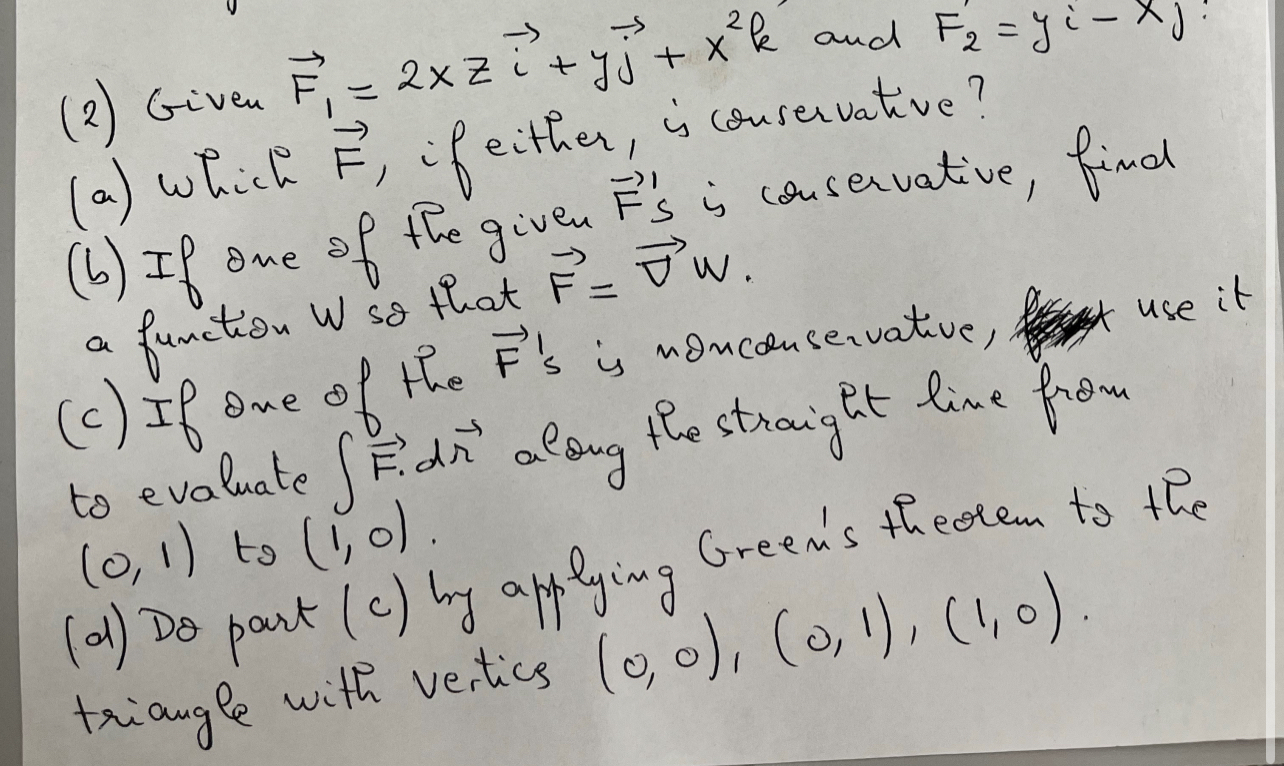 (2) Given F⃗₁ = 2xz i⃗ + y j⃗ + x²k and F₂ = y i − x j.
(a) Which F⃗, if either, is conservative?
(b) If one of the given F⃗'s is conservative, find
a function W so that F⃗ = ∇⃗W.
(c) If one of the F⃗'s is nonconservative, use it
to evaluate ∫F⃗.dr⃗ along the straight line from
(0,1) to (1,0).
(d) Do part (c) by applying Green's theorem to the
triangle with vertics (0,0), (0,1), (1,0).